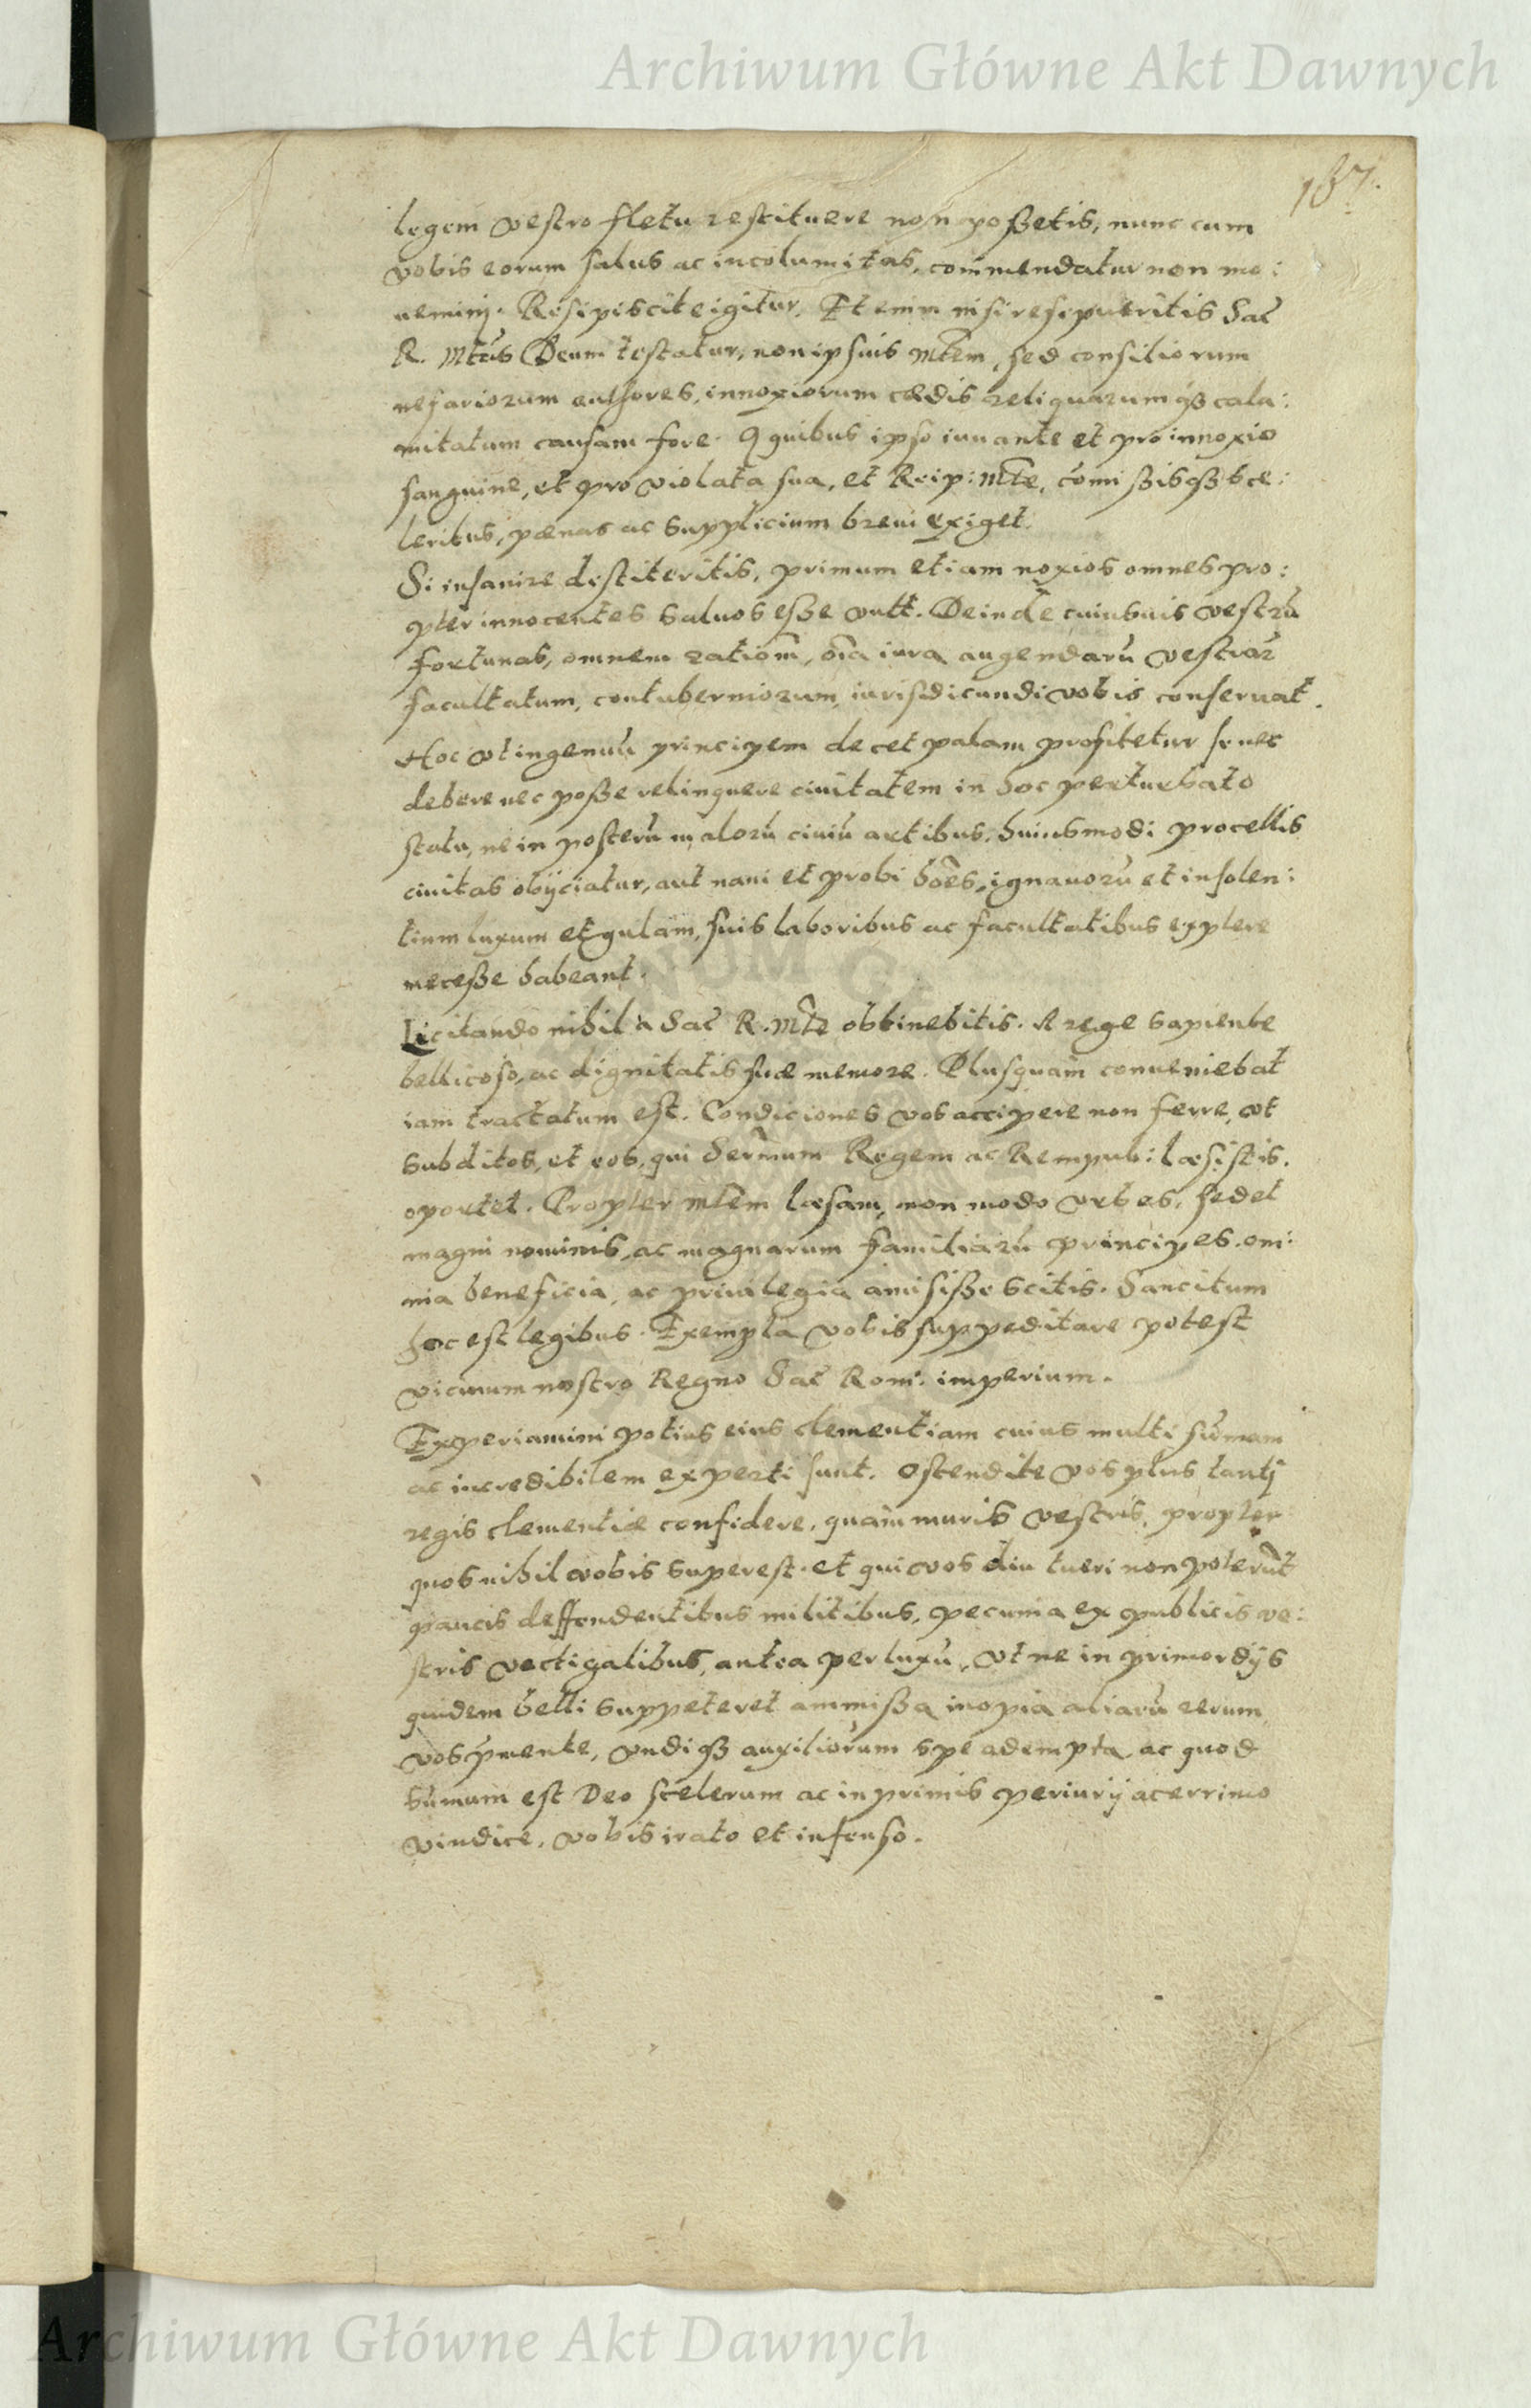 Archiwum Główne Akt Dawnych
187.
legem vestro fletu restituere non poßetis, nunc cum
vobis eorum salus ac incolumitas, commendatur non mo:
uemini. Resipiscite igitur. Et enim nisi resipueritis Sac̃
R. Mtas Deum testatur, non ipsius Mtem, sed consiliorum
nefariorum authores, innoxiorum cædis reliquarumqȝ cala:
mitatum causam fore. A quibus ipso iuuante et pro innoxio
sanguine, et pro violata sua, et Reip: Mte, com̃ißisqȝ sce:
leribus, pænas ac supplicium breui exiget.
Si insanire destiteritis, primum etiam noxios omnes pro:
pter innocentes saluos eße vult. Deinde cuiusuis vestrũ
fortunas, omnem ratiom̃, oĩa iura augendarũ vestrar̃
facultatum, contuberniorum, iurisdicundi vobis conseruat.
Hoc vt ingenuũ principem decet palam profitetur se nec
debere nec poße relinquere ciuitatem in hoc perturbato
statu, ne in posterũ malorũ ciuiũ artibus, huiusmodi procellis
ciuitas obijciatur, aut naui et probi hoẽs, ignauorũ et insolen:
tium luxum et gulam, suis laboribus ac facultatibus explere
neceße habeant.
Licitando nihil a Sac̃ R. Mte obtinebitis. A rege sapiente
bellicoso, ac dignitatis suæ memore. Plusquam conueniebat
iam tractatum est. Condiciones vos accipere non ferre, vt
subditos, et eos, qui Serm̃um Regem ac Rempub: læsistis.
oportet. Propter Mtem læsam, non modo vrbes, sed et
magni nominis, ac magnarum familiarũ principes. om:
nia beneficia, ac priuilegia amisiße scitis. Sancitum
hoc est legibus. Exempla vobis suppeditare potest
vicinum nostro Regno Sac̃ Rom: imperium.
Experiamini potius eius clementiam cuius multi sum̃am
ac incredibilem experti sunt. Ostendite vos plus tantj
regis clementiæ confidere, quàm muris vestris, propter
quos nihil vobis superest. et qui vos diu tueri non poterũt
paucis deffendentibus militibus, pecunia ex publicis ve:
stris vectigalibus, antea per luxũ, vt ne in primordijs
quidem belli suppeteret ammißa inopia aliarũ rerum
vos p̃mente, vndiqȝ auxiliorum spe adempta, ac quod
sum̃um est Deo scelerum ac in primis periurij acerrimo
vindice, vobis irato et infenso.
Archiwum Główne Akt Dawnych